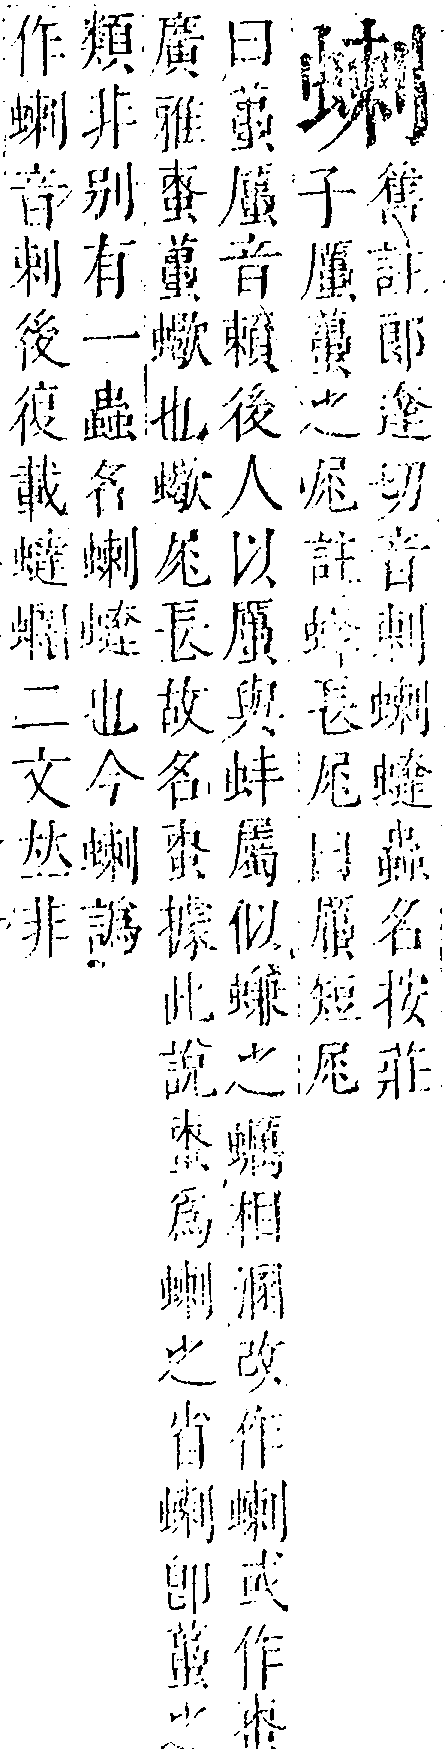 蝲
舊註郎達切音剌蝲蟽蟲名按莊
子蠇蠆之尾註蠍長尾曰蠇短尾
曰蠆蠇音賴後人以蠇與蚌屬似蠔之蠣相溷改作蝲或作䗍
廣雅䗍蠆蠍也蠍尾長故名䗍據此說䗍爲蝲之省蝲卽蠆之
類非別有一蟲名蝲蟽也今蝲譌
作蝲音剌後復載蟽二文𠀤非